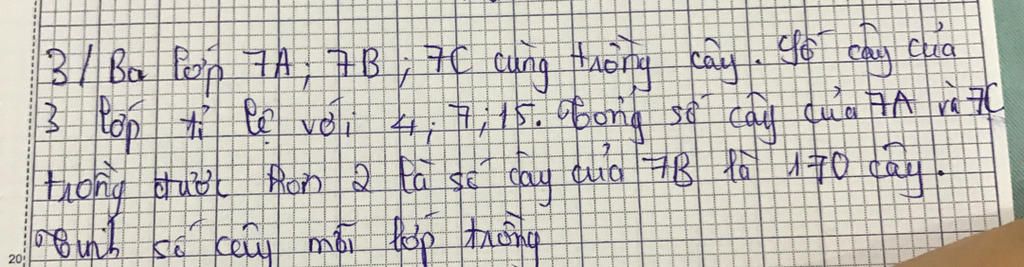 3/ Ba lớp 7A; 7B; 7C cùng trồng cây. Số cây của
3 lớp tỉ lệ với 4; 7; 15. Tổng số cây của 7A và 7C
trồng được hơn 2 là số cây của 7B là 170 cây.
Tính số cây mỗi lớp trồng
20